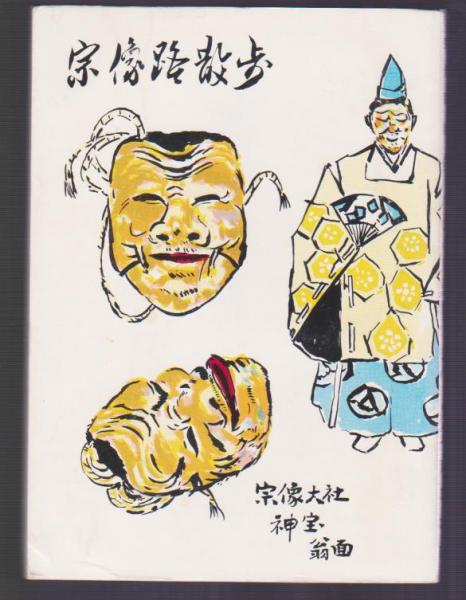 宗像路散歩
宗像大社
神宝
翁面